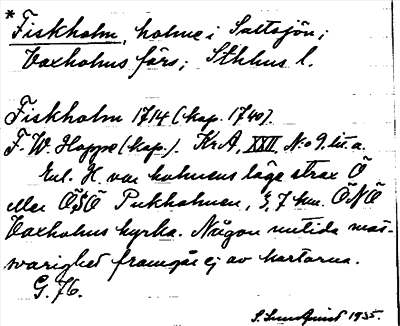 *Fiskholm, holme i Saltsjön;
Vaxholms förs; Sthlms l.
Fiskholm 1714 (kop. 1740).
F. W. Hoppe (kop.). KrA, XXII, N:o 9. lit. a.
Enl. H. var holmens läge strax Ö
eller ÖSÖ Pukholmen, 3,7 km. ÖNÖ
Vaxholms kyrka. Någon nutida mot-
svarighet framgår ej av kartorna.
G. 76.
S. Lundquist 1935.